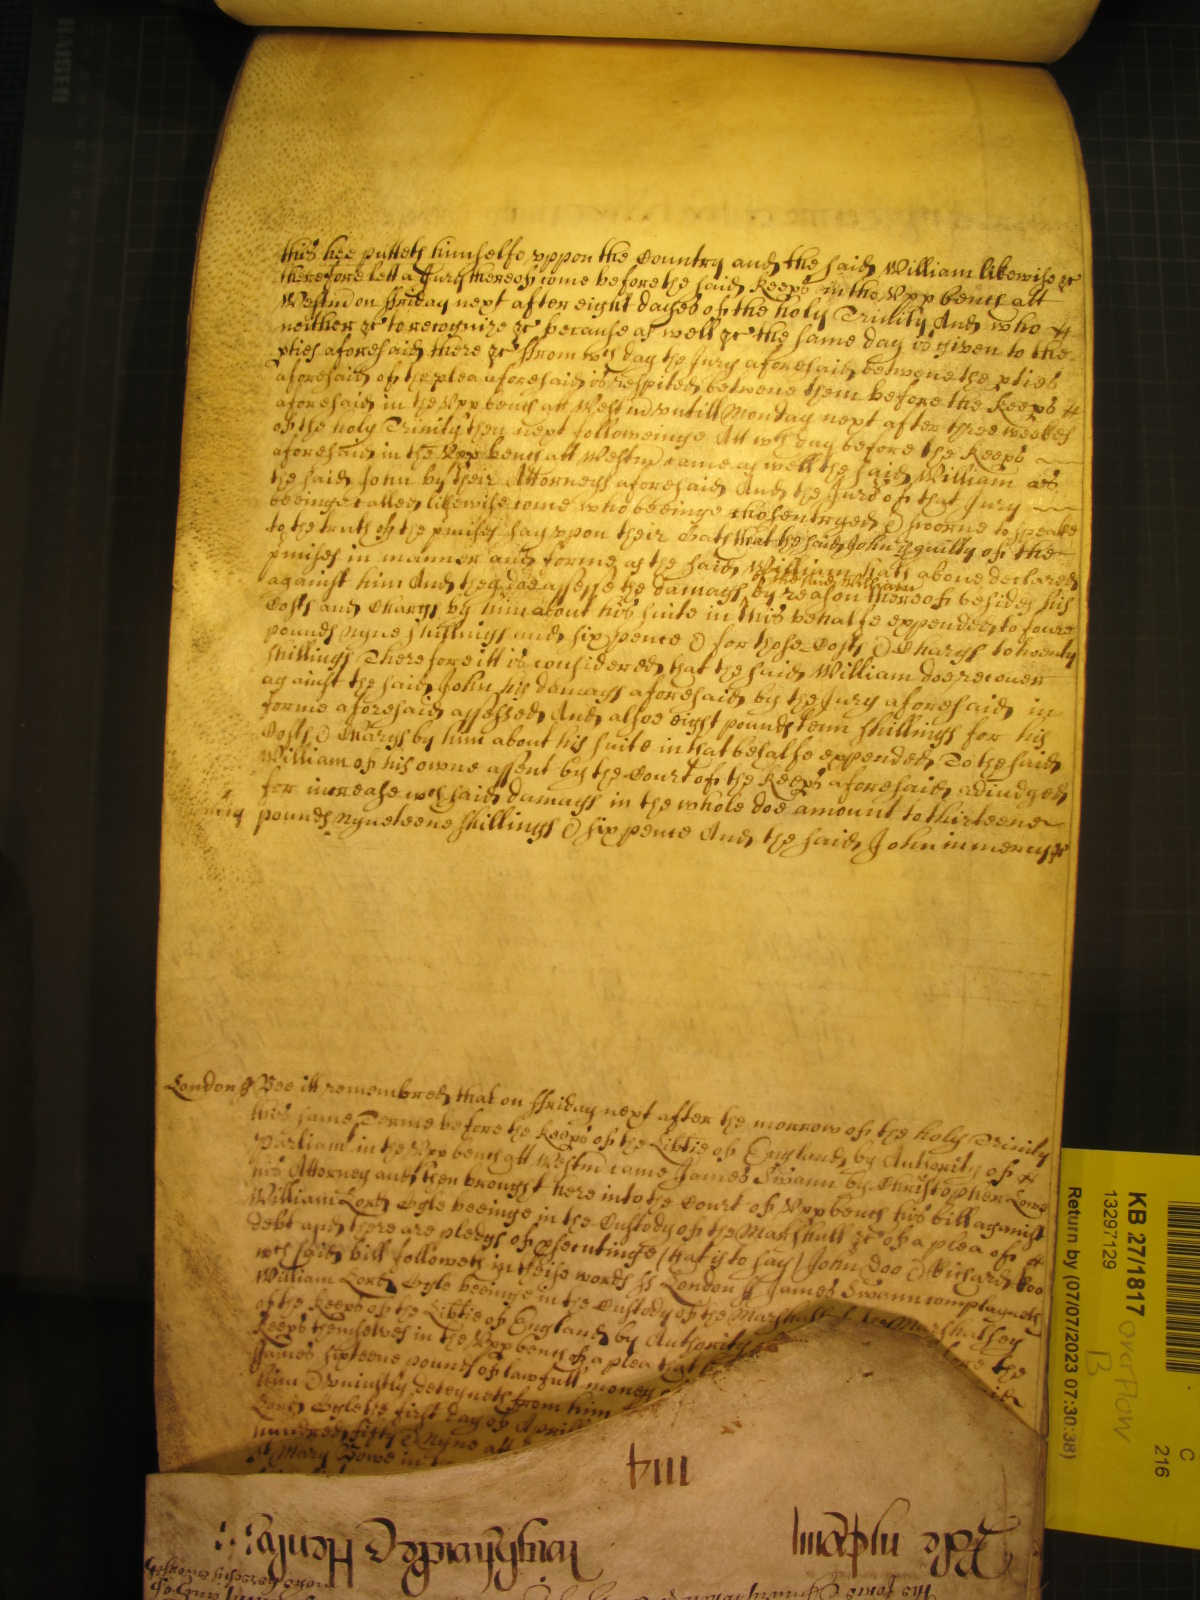 this hee putteth himselfe uppon the Country and the said William likewise &c
therefore lett a Jury thereof come before the said Keeps in the Upp bench att
Westm on ffriday next after eight dayes of the holy Trinity And who
neither &c to recognize &c because as well &c the same day is given to the
pties aforesaid there &c ffrom wch day the Jury aforesaid betwene the pties
aforesaid of the plea aforesaid is respited betwene them before the Keeps
aforesaid in the Upp bench att Westm untill Monday next after three weekes
of the holy Trinity then next followeinge Att wch day before the Keeps
aforesaid in the Upp bench att Westm came as well the said William as
the said John by their Attorneys aforesaid And the Jurs of that Jury
beeinge called likewise come who beeinge chosen tryed & sworne to speake
to the truth of the pmises say upon their Oath that the said John is guilty of the
pmises in manner and forme as the said William hath above declared
against him And they doe assesse the damags of the said William by reason thereof besides his
Costs and Chargs by him about his suite in this behalfe expended to foure
pounds nyne shillings and sixpence & for those Costs & Chargs to twenty
shillings Therefore itt is considered that the said William doe recover
against the said John his damags aforesaid by the Jury aforesaid in
forme aforesaid assessed And alsoe eight pounds tenn shillings for his
Costs & Chargs by him about his suite in that behalfe expended To the said
William of his owne assent by the Court of the Keeps aforesaid adiudged
for increase wch said damags in the whole doe amount to thirteene
pounds nyneteene shillings & six pence And the said John in mercy &c
London ss Bee itt remembred that on ffriday next after the morrow of the holy Trinity
this same Terme before the Keeps of the Libtie of England by Authority of
Parliamt in the Upp bench att Westm came James Swann by Christopher Lowe
his Attorney and then brought here into the Court of Upp bench his bill against
William Lord Ogle beeinge in the Custody of the Marshall &c of a plea of
debt and there are pledgs of psecutinge (that is to say) John Doo & Richard Roo
wch said bill followeth in theise words ss London ss James Swann complayneth
William Lord Ogle beeinge in the Custody of the Marshall of the Marshalsey
of the Keeps of the Libtie of England by Authority the
Keeps themselves in the Upp bench of a plea that
James sixteene pounds of lawfull money
him & uniustly deteyneth from him
Lord Ogle the first day of Aprill
hundred fifty & Nyne att
St Mary Bowe in
1114
KB 27/1817
13297129
Return by (07/07/2023 07:30:38)
C
216
Overflow
B
KAISER